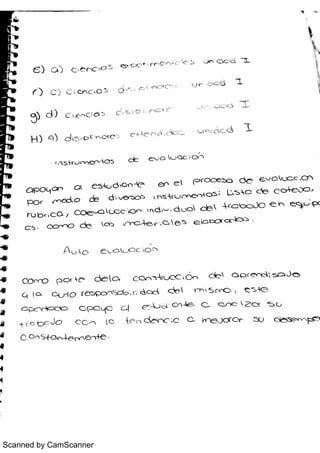 e) a) ciencias experimentales unidad I
f) c) ciencias unidad I
g) d) ciencias unidad I
H) a) disoknare) extendidas unidad I
instrumentos de evaluación
apoyan al estudiante en el proceso de evaluación
por medio de diversos instrumentos: Lista de cotejo,
rubrica, coevaluación individual del trabajo en equipo
cs. como de los materiales elaborados.
Auto evaluación
como parte de la construcción del aprendizaje
y la auto responsabilidad del mismo, este
apartado apoya al estudiante a analizar su
trabajo con la tendencia a mejorar su desempe
constantemente.
Scanned by CamScanner